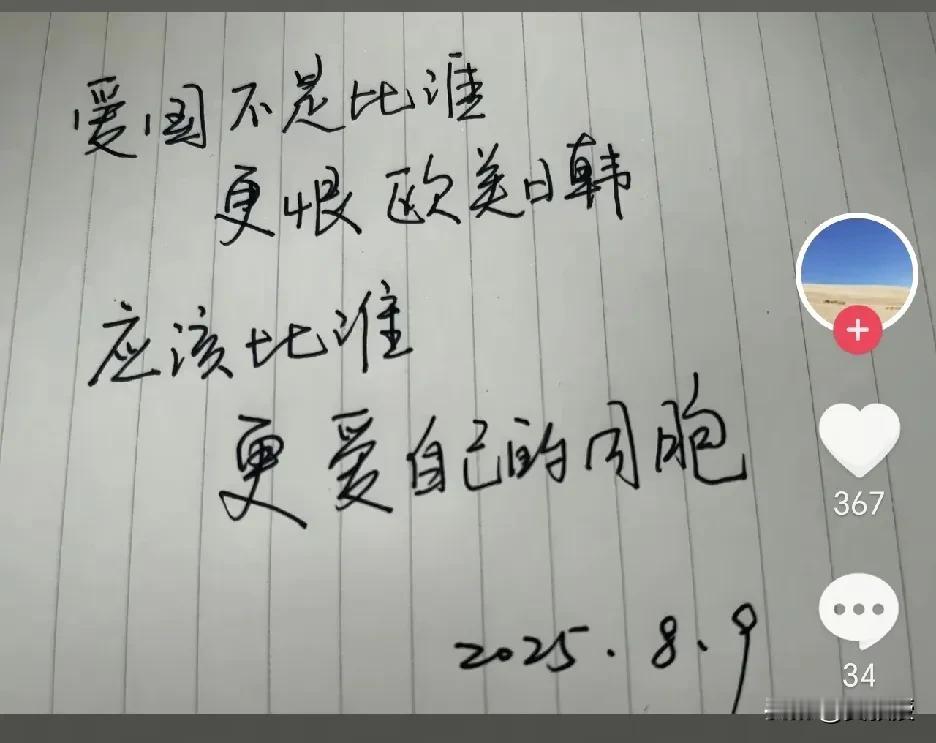 爱国不是比谁
更恨欧美日韩
应该比谁
更爱自己的同胞
2025.8.9
367
34